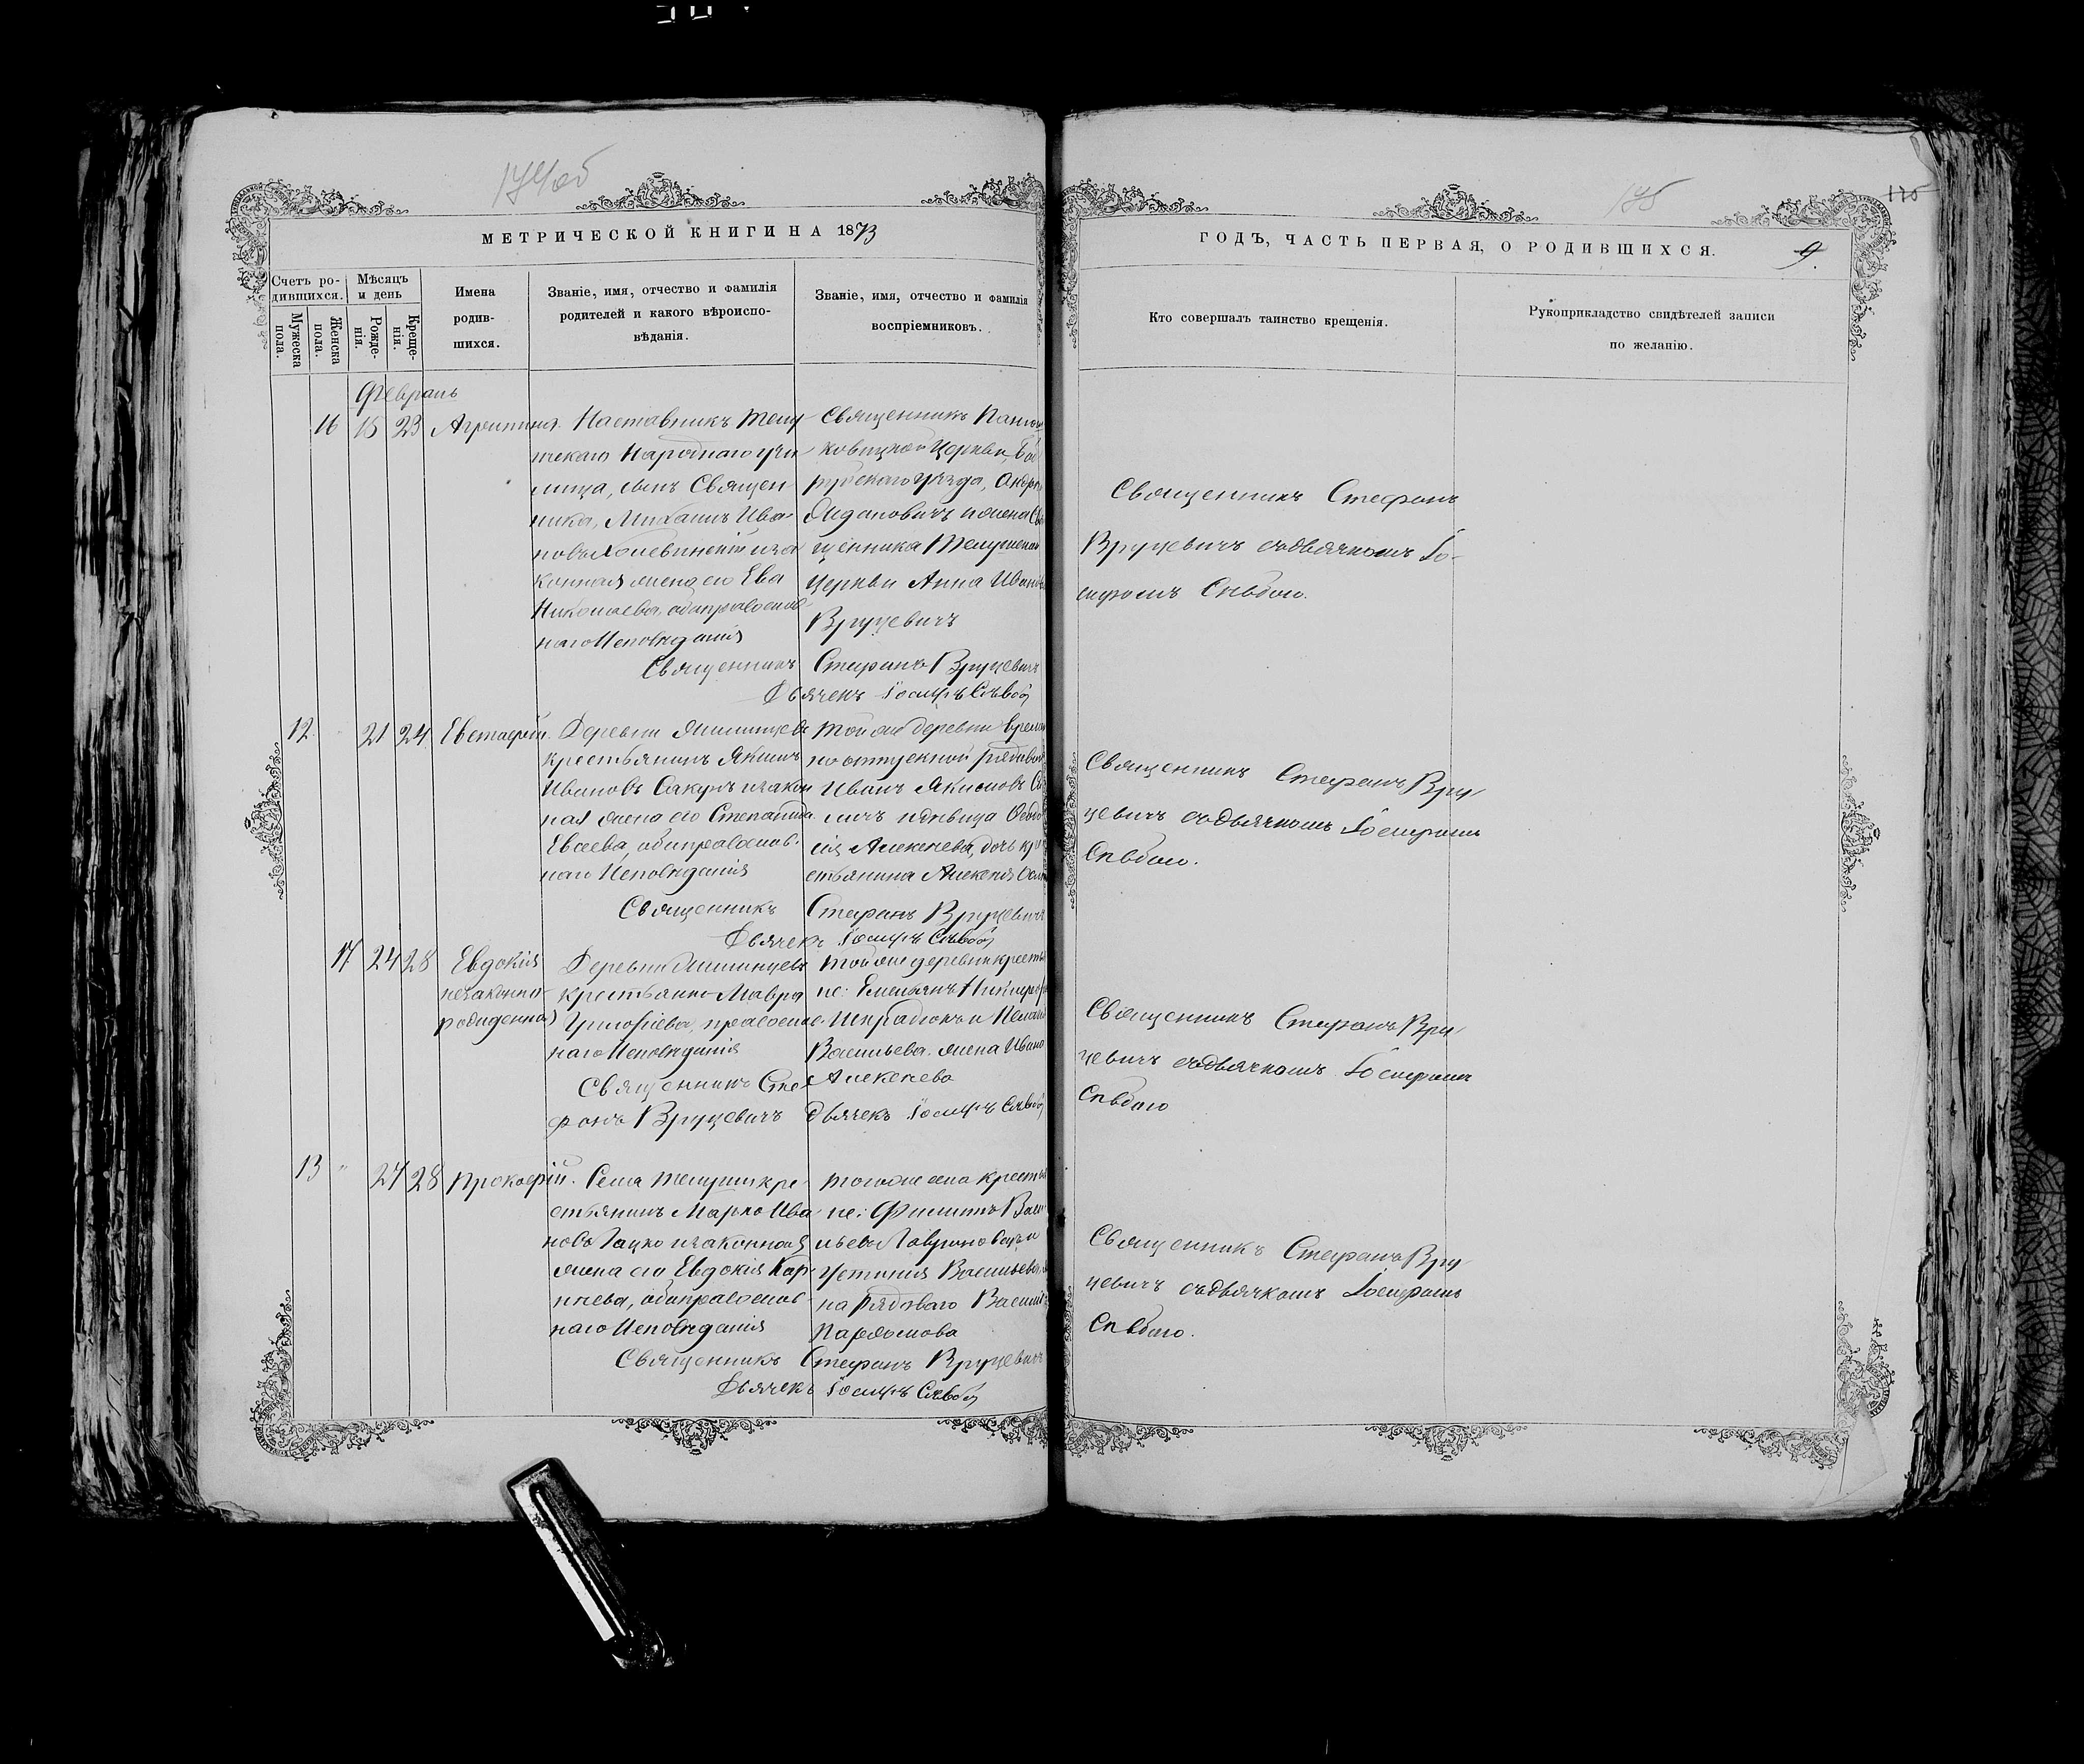 174об
МЕТРИЧЕСКОЙ КНИГИ НА 1873
Счетъ ро-
дившихся.
Мѣсяцъ
и день
Мужеска
пола.
Женска
пола.
Рожде-
нія.
Креще-
нія.
Имена
родив-
шихся.
Званіе, имя, отчество и фамилія
родителей и какого вѣроиспо-
вѣданія.
Званіе, имя, отчество и фамилія
воспріемниковъ.
Февраль
16 15 23 Агрипина.
Наставникъ Телу-
шскаго Народнаго учи
лища, сынъ Священ-
ника, Михаилъ Ива-
новъ и зa
конная жена его Ева
Николаева, оба православ
наго Исповѣданія
Священникъ
ковицкой Церкви, Боб
руйскаго уѣзда, Андрей
и жена Свя
щенника Телушской
Церкви Анна Иванова
Вруцевичъ
Священникъ Стефанъ Вруцевичъ
Дьячекъ Іосифъ
12. 21 24 Евстафій.
Деревни
крестьянинъ Якимъ
Ивановъ Сакунъ и закон
ная жена его Степанида
Евсеева, оба православ-
наго Исповѣданія
той же деревни времен
но отпускной рядовой
Иванъ Якимовъ
и дѣвица
Алексѣева, дочь кре
стьянина Алексѣя
Священникъ Стефанъ Вруцевичъ
Дьячекъ Іосифъ
17 24 28 Евдокія
незаконно-
рожденная
Деревни
крестьянка Мавра
Григорьева, православ
наго Исповѣданія
той же деревни кресть
не: Емельянъ Никифоровъ
и
Васильева жена Ивана
Алексѣева
Священникъ Сте
фанъ Вруцевичъ
Дьячекъ Іосифъ
13 " 27 28 Прокофій.
Села Телуши кре-
стьянинъ Марко Ива
новъ Гацко и законная
жена его Евдокія Кор-
нѣева, оба православ-
наго Исповѣданія
того же села кресть
не: Филиппъ Васи
льевъ и
Устинія Васильева,
на рядоваго Василія
Священникъ Стефанъ Вруцевичъ
Дьячекъ Іосифъ
175
175
ГОДЪ, ЧАСТЬ ПЕРВАЯ, О РОДИВШИХСЯ.
9.
Кто совершалъ таинство крещенія.
Рукоприкладство свидѣтелей записи
по желанію.
Священникъ Стефанъ
Вруцевичъ съ дьячкомъ Іо-
сифомъ
Священникъ Стефанъ Вру-
цевичъ съ дьячкомъ Іосифомъ
Священникъ Стефанъ Вру-
цевичъ съ дьячкомъ Іосифомъ
Священникъ Стефанъ Вру-
цевичъ съ дьячкомъ Іосифомъ